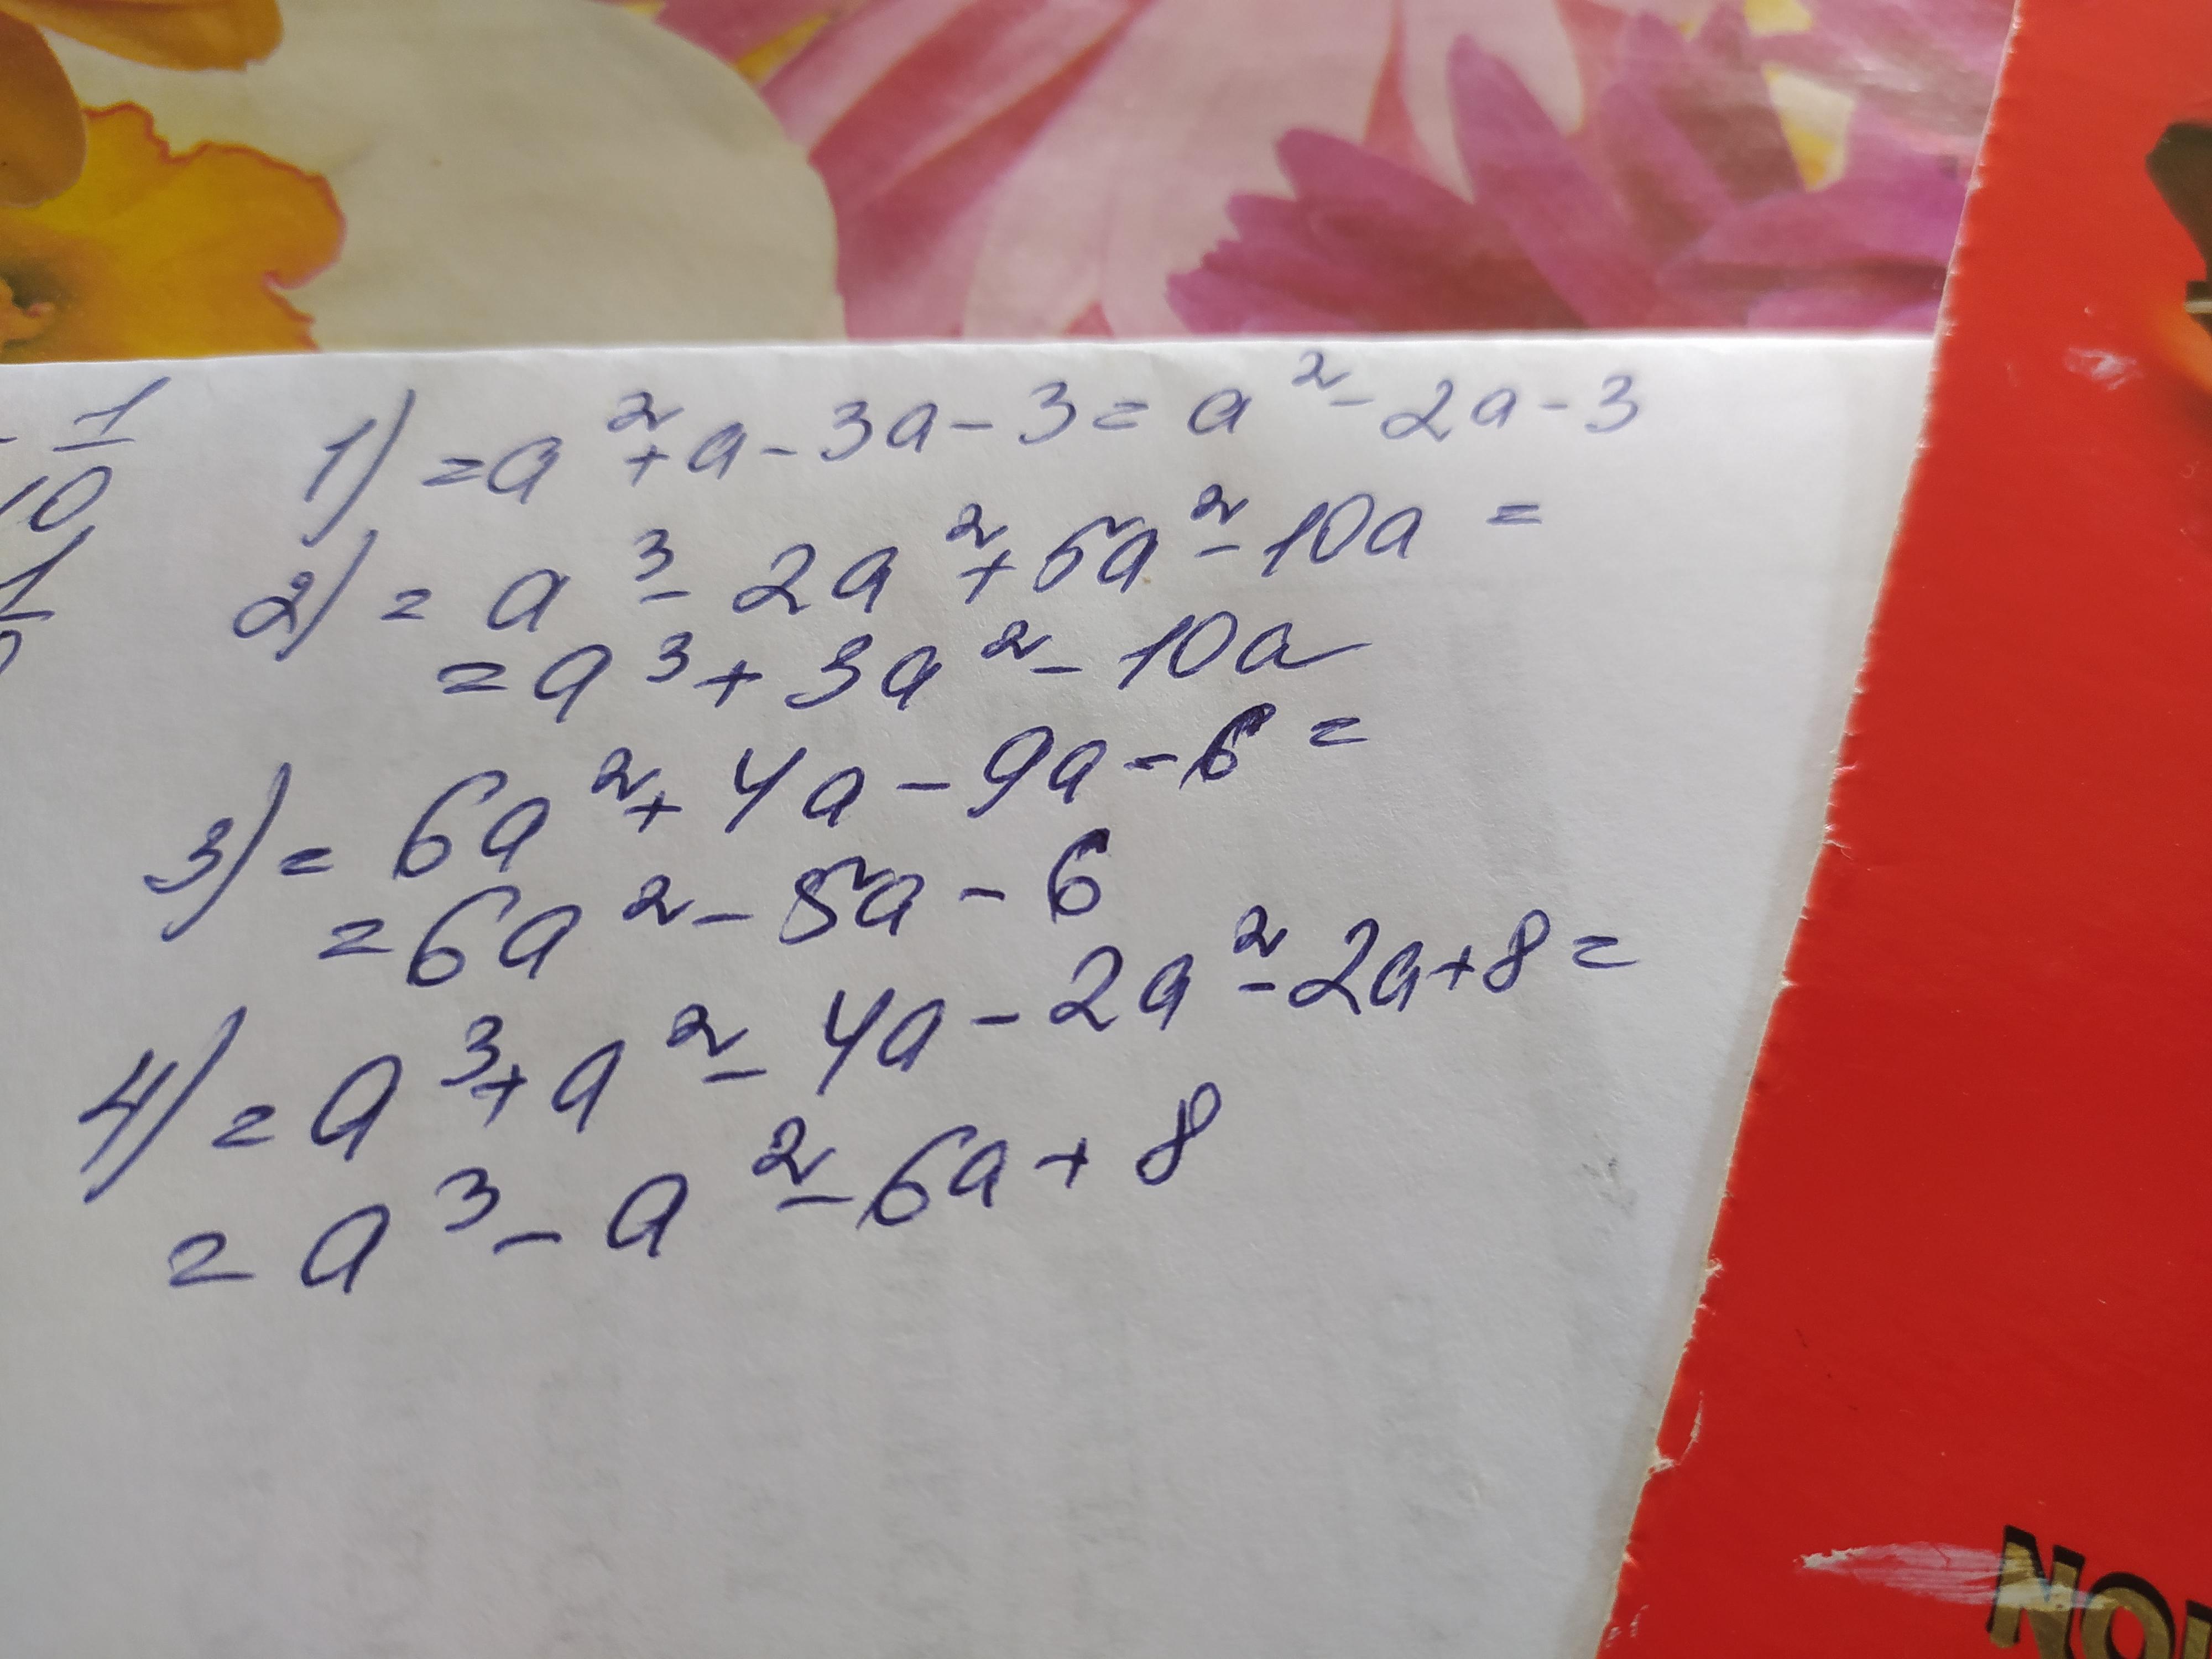 - 1/10
1) = a² + a - 3a - 3 = a² - 2a - 3
2) = a³ - 2a² + 5a² - 10a =
= a³ + 3a² - 10a
3) = 6a² + 4a - 9a - 6 =
= 6a² - 5a - 6
4) = a³ + a² - 4a - 2a² - 2a + 8 =
= a³ - a² - 6a + 8